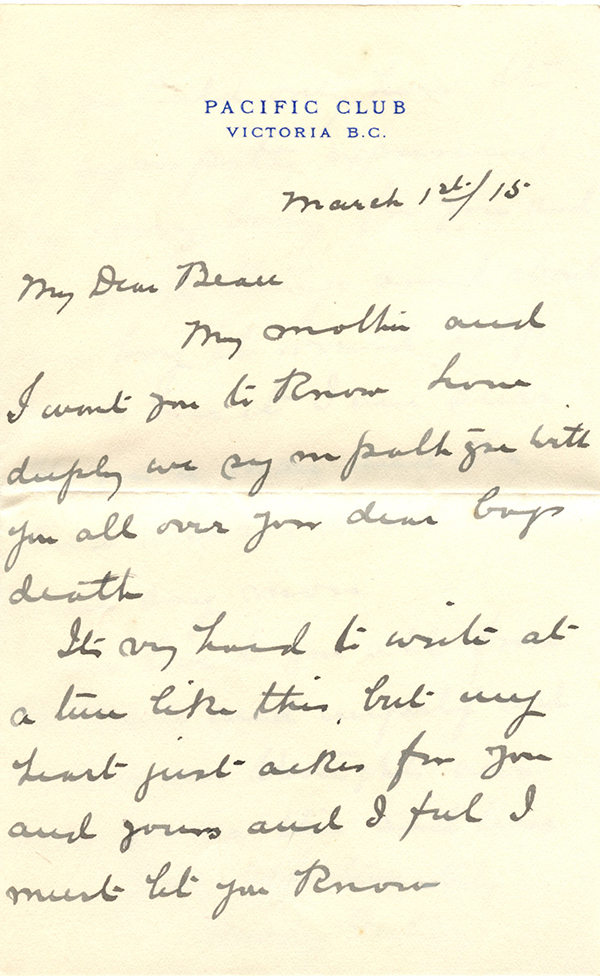 PACIFIC CLUB
VICTORIA B.C.
March 1st/15
My Dear
My mother and
I want you to know how
deeply we sympathyse with
you all over your dear boys
death
Its very hard to write at
a time like this, but my
heart just aches for you
and yours and I feel I
must let you know